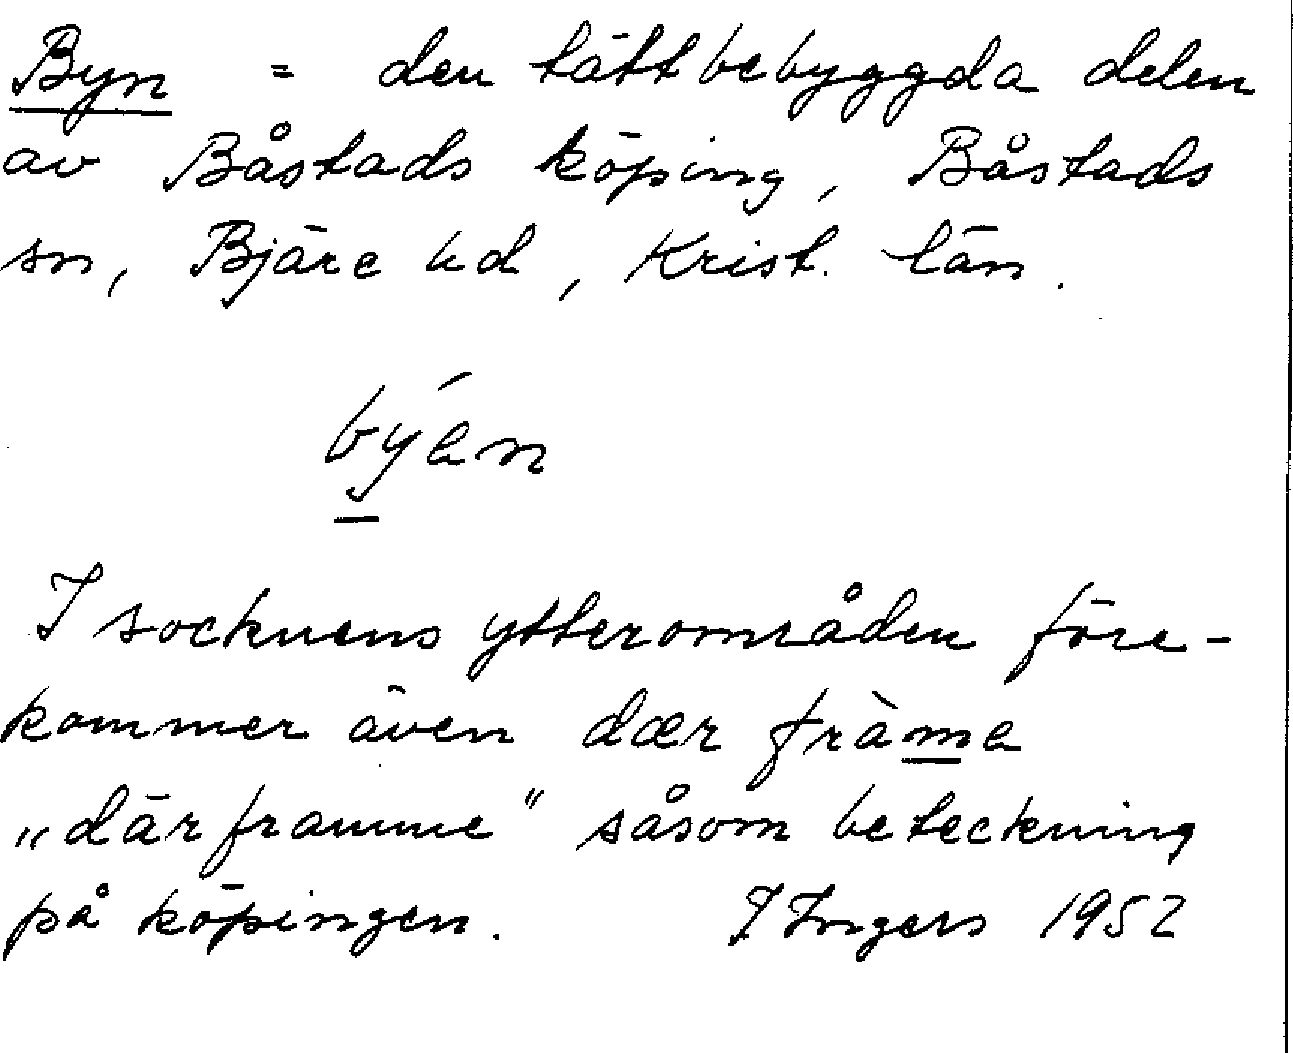 Byn = den tättbebyggda delen
av Båstads köping, Båstads
sn, Bjäre hd, Krist. län.
byén
I socknens ytterområden före-
kommer även dær fràme
„därframme" såsom beteckning
på köpingen. I Ingers 1952